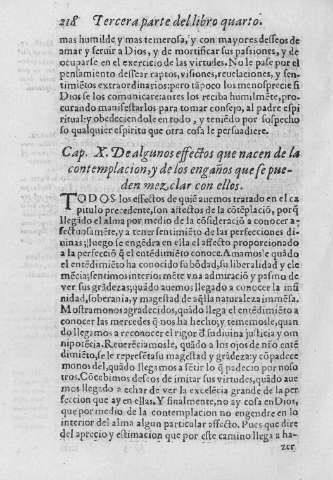 218 Tercera parte del libro quarto.
mas humilde y mas temerosa, y con mayores desseos de
amar y seruir a Dios, y de mortificar sus passiones, y de
ocuparse en el exercicio de las virtudes. No le pase por el
pensamiento dessear raptos, visiones, reuelaciones, y sen-
timiẽtos extraordinarios: pero tãpoco los menosprecie si
Dios se los comunicare: antes los reciba humilmẽte, pro-
curando manifestarlos para tomar consejo, al padre espi
ritual: y obedeciendole en todo, y teniẽdo por sospecho
so qualquier espiritu que otra cosa le persuadiere.
Cap. X. De algunos effectos que nacen de la
contemplacion, y de los engaños que se pue-
den mezclar con ellos.
TODOS los efectos de quiẽ auemos tratado en el ca
pitulo precedente, son affectos de la cõtẽplaciõ, porq̃
llegado el alma por medio de la cõsideraciõ a conocer a-
fectuosamẽte, y a tener sentimiẽto de las perfecciones di-
uinas; luego se engẽdra en ella el affecto proporcionado
a la perfecciõ q̃ el entẽdimiẽto conoce. Amamosle quãdo
el entẽdimiẽto ha conocido su bõdad, su liberalidad y cle
mẽcia; sentimos interiormẽte vna admiraciõ y pasmo de
ver sus grãdezas, quãdo auemos llegado a conocer la infi
nidad, soberania, y magestad de aq̃lla naturaleza immẽsa.
Mostramonos agradecidos, quãdo llega el entẽdimiẽto a
conocer las mercedes q̃ nos ha hecho, y tememosle, quan
do llegamos a reconocer el rigor d̃ su diuina justicia y om
nipotẽcia. Reuerẽciamosle, quãdo a los ojos de ñro entẽ
dimiẽto, se le represẽta su magestad y grãdeza: y cõpadece
monos del, quãdo llegamos a sẽtir lo q̃ padecio por noso
tros. Cõcebimos deseos de imitar sus virtudes, quãdo aue
mos llegado a echar de ver la excelẽcia grande de la per
feccion que ay en ellas. Y finalmente, no ay cosa en Dios,
que por medio de la contemplacion no engendre en lo
interior del alma algun particular affecto. Pues que dire
del aprecio y estimacion que por este camino llega a ha-
zer